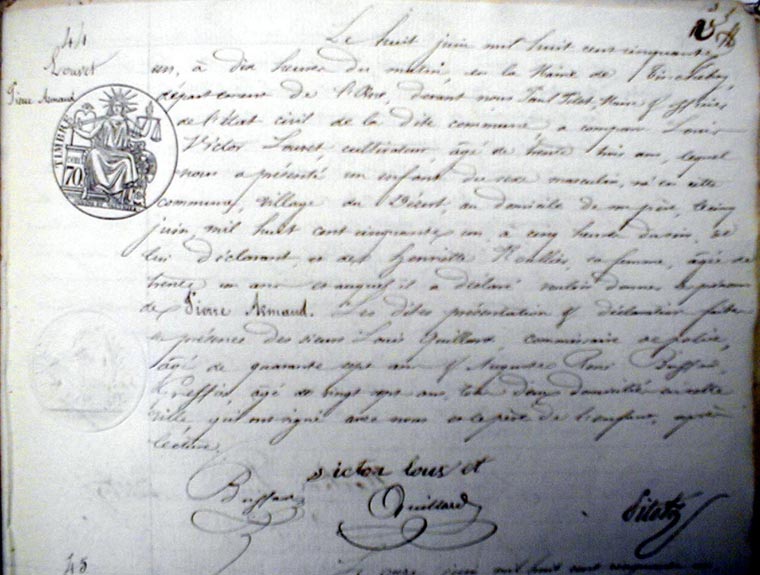 44
Louvet
Pierre Armand
TIMBRE
70
Le huit juin mil huit cent cinquante
un, à dix heures du matin, en la Mairie de Tinchebray,
département de l'Orne, devant nous Paul Pitot, Maire & officier
de l'état civil de la dite commune, a comparu Louis
Victor Louvet, cultivateur, âgé de trente trois ans, lequel
nous a présenté un enfant du sexe masculin, né en cette
commune, village du, au domicile de son père, le cinq
juin, mil huit cent cinquante un, à cinq heures du soir, de
lui déclarant, et de Henriette, sa femme, âgée de
trente un ans et auquel il a déclaré vouloir donner le prénom
de Pierre Armand. Les dites présentation & déclaration faites
en présence des sieurs Louis Quillard, commissaire de police,
âgé de quarante sept ans & Auguste René Buffard,
Greffier, âgé de vingt sept ans, tous deux domiciliés en cette
ville, qui ont signé avec nous et le père de l'enfant, après
lecture.
victor louvet
Buffard
Quillard
Pitot
45
mil huit cent cinquante un